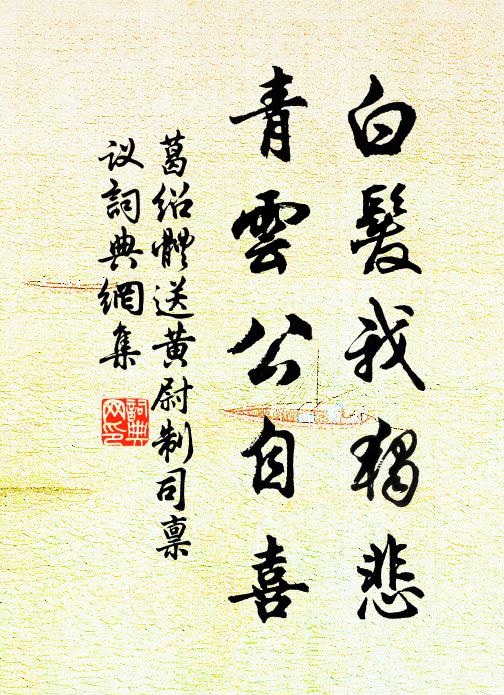 白髮我獨悲
青雲公自喜
葛绍體送黄尉制司禀
议詞典網集
詞典
网印